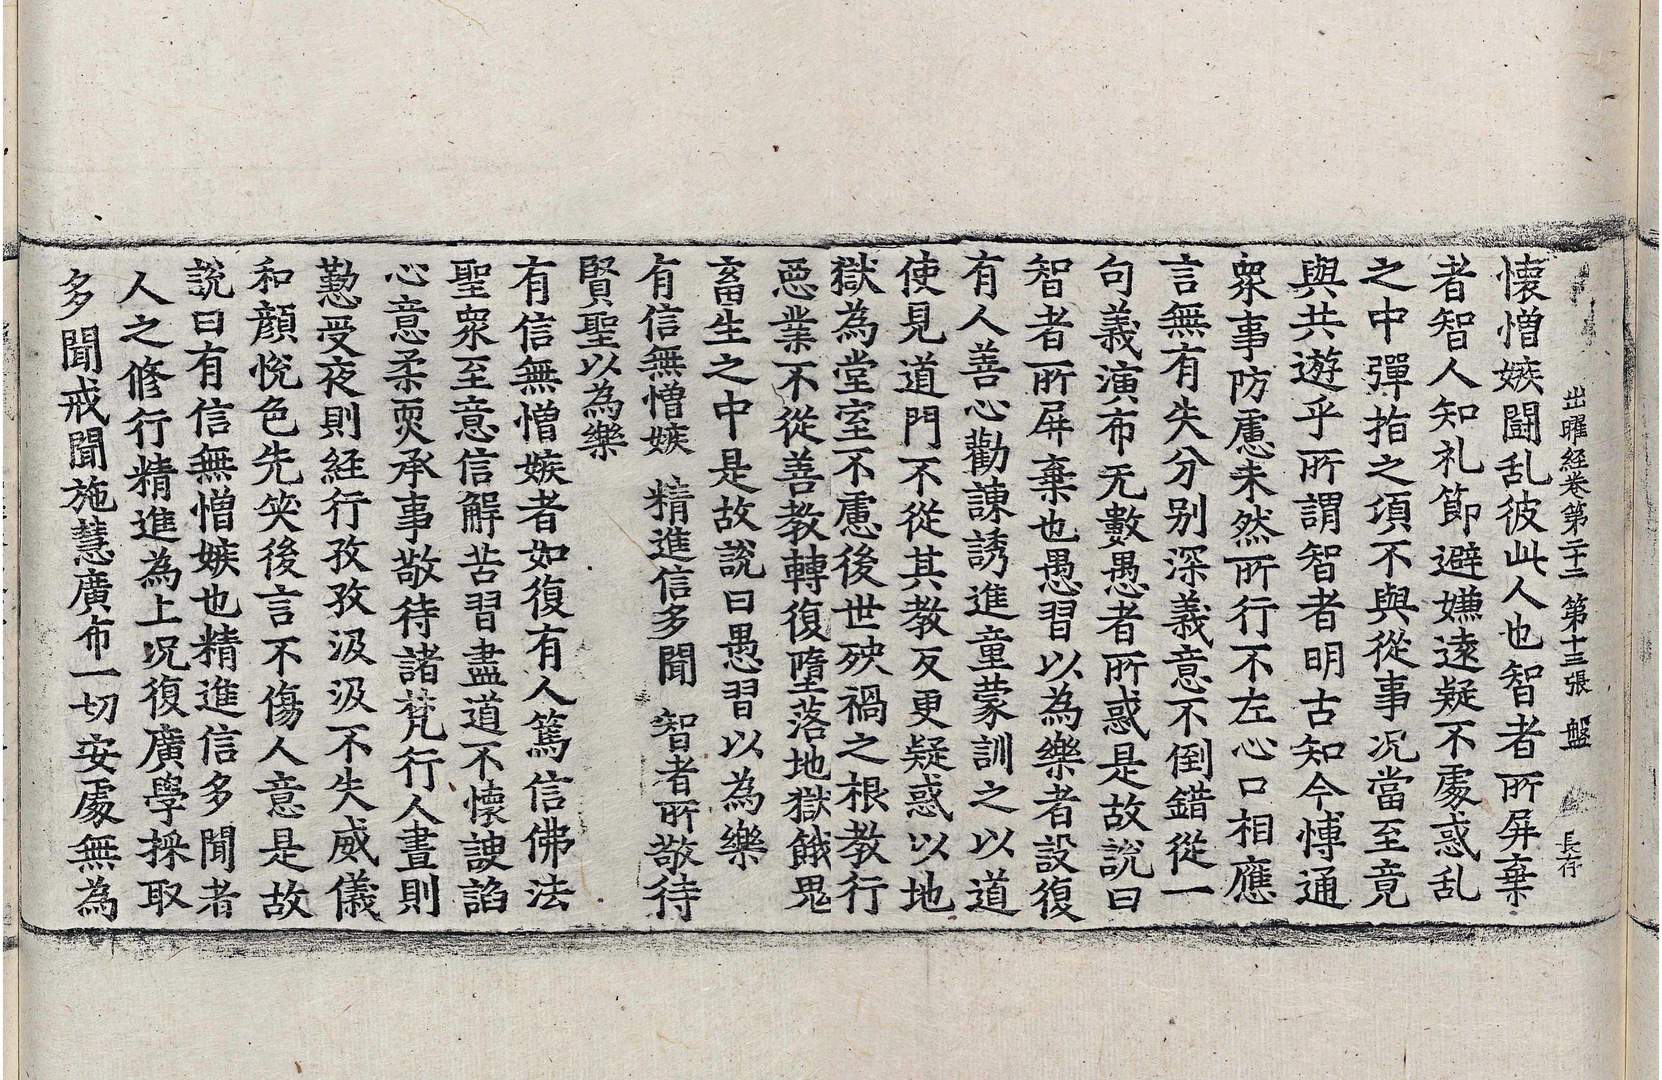 出曜經卷第二十二 第十三張 盤 長存
懷憎嫉鬪乱彼此人也智者所屏棄
者智人知礼節避嫌遠疑不處惑乱
之中彈指之頃不與從事况當至竟
與共遊乎所謂智者明古知今博通
衆事防慮未然所行不左心口相應
言無有失分别深義意不倒錯從一
句義演布无數愚者所惑是故說曰
智者所屏棄也愚習以為樂者設復
有人善心勸諫誘進童蒙訓之以道
使見道門不從其教反更疑惑以地
獄為堂室不慮後世殃禍之根教行
惡業不從善教轉復墮落地獄餓鬼
畜生之中是故說曰愚習以為樂
有信無憎嫉 精進信多聞 智者所敬待
賢聖以為樂
有信無憎嫉者如復有人篤信佛法
聖衆至意信解苦習盡道不懷諛諂
心意柔耎承事敬待諸梵行人晝則
懃受夜則経行孜孜汲汲不失威儀
和顔悅色先笑後言不傷人意是故
說曰有信無憎嫉也精進信多聞者
人之修行精進為上况復廣學採取
多聞戒聞施慧廣布一切安處無為